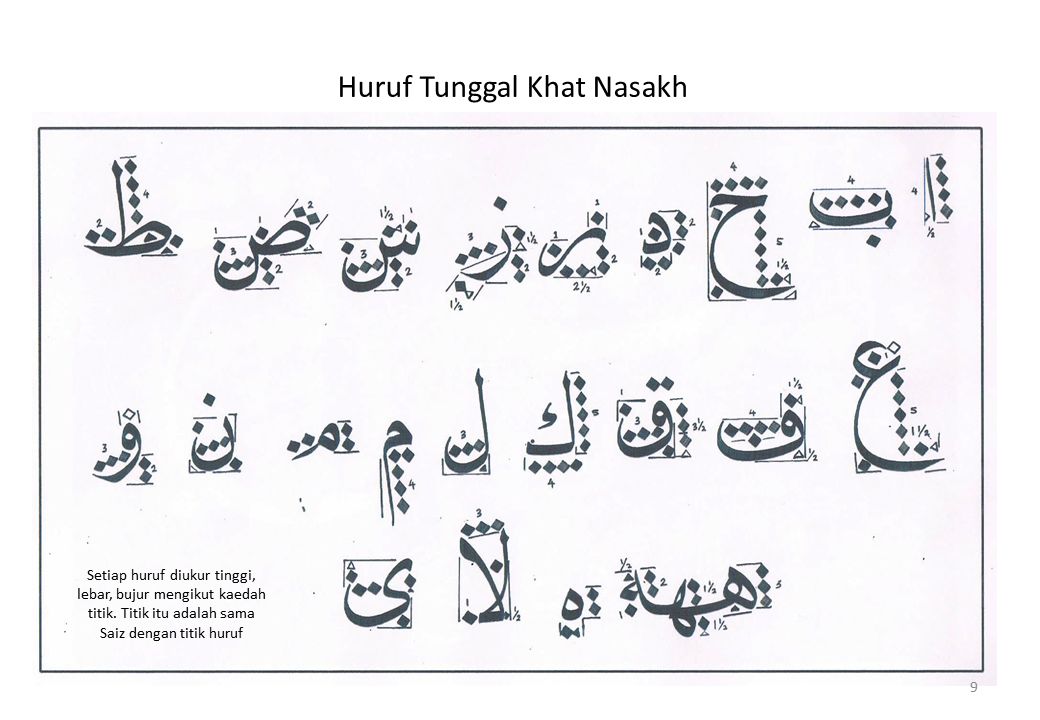 Huruf Tunggal Khat Nasakh
ا ب ج د ر ز س ص ط
ع ف ق ك ل م م ن و
ههه ه لا ى
Setiap huruf diukur tinggi,
lebar, bujur mengikut kaedah
titik. Titik itu adalah sama
Saiz dengan titik huruf
9